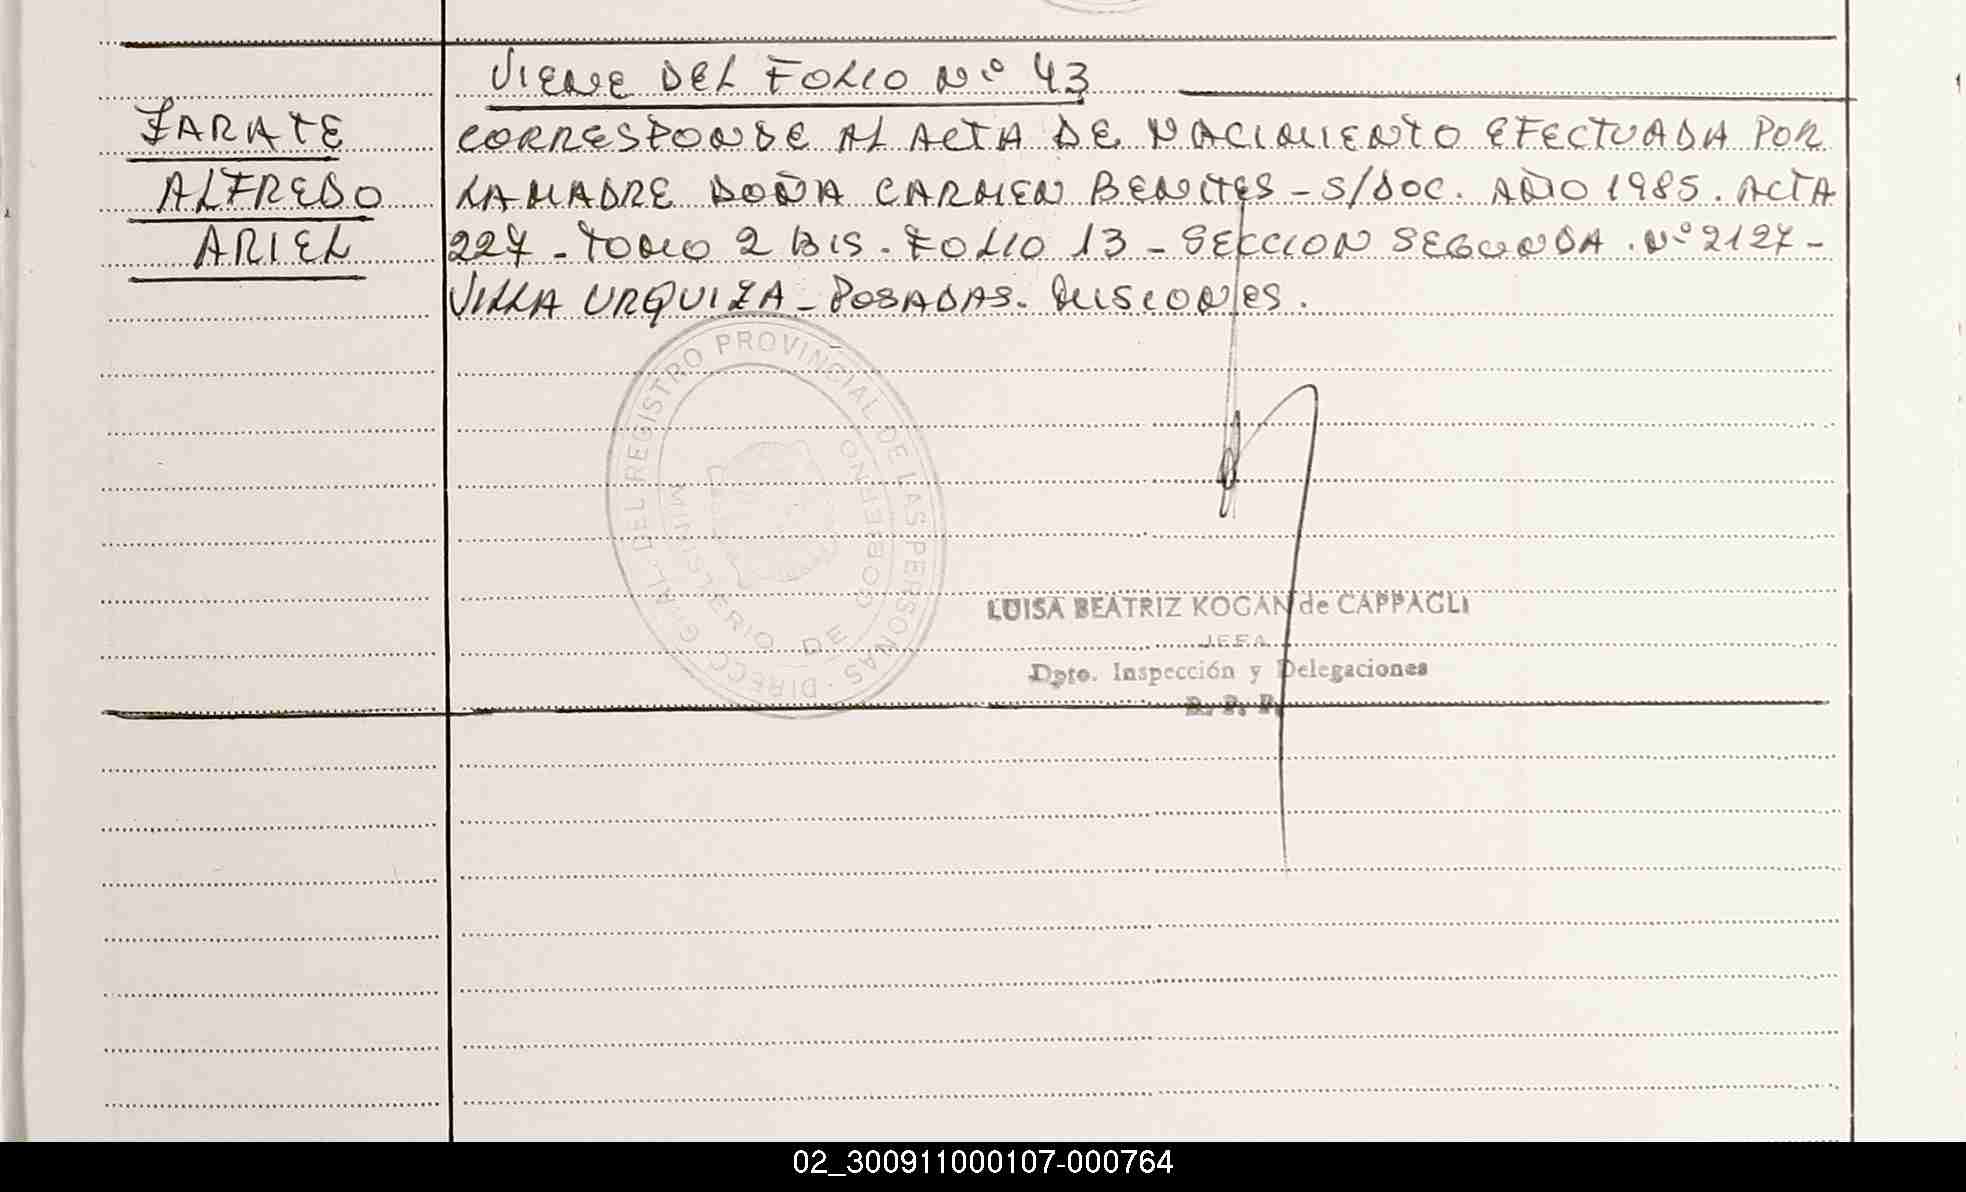 VIENE DEL FOLIO Nº 43
ZARATE
ALFREDO
ARIEL
CORRESPONDE AL ACTA DE NACIMIENTO EFECTUADA POR
LA MADRE DOÑA CARMEN BENITES - S/DOC. AÑO 1985. ACTA
227 - TOMO 2 BIS. FOLIO 13 - SECCION SEGUNDA. Nº 2127 -
VILLA URQUIZA - POSADAS. MISIONES.
DIRECC. GRAL. DEL REGISTRO PROVINCIAL DE LAS PERSONAS
MINISTERIO DE GOBIERNO
LUISA BEATRIZ KOGAN de CAPPAGLI
JEFA
Dpto. Inspección y Delegaciones
R. P. P.
02_300911000107-000764